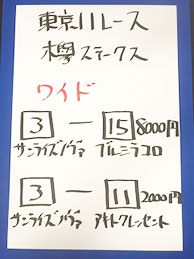 東京11レース
欅ステークス
ワイド
3 — 15 8000円
サンライズノヴァ ブルミラコロ
3 — 11 2000円
サンライズノヴァ アキトクレッセント